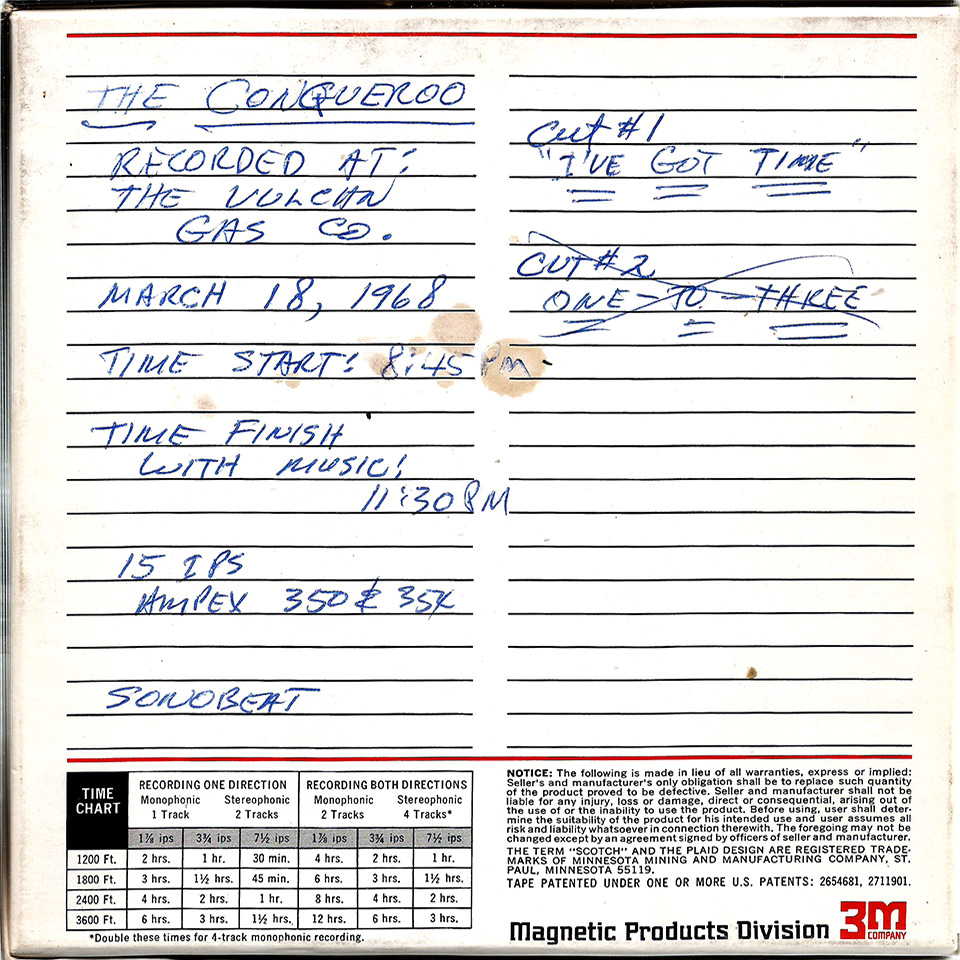 THE CONQUEROO
RECORDED AT:
THE VULCAN
GAS CO.
MARCH 18, 1968
TIME START: 8:45 PM-
TIME FINISH
WITH MUSIC!
11:30 PM
15 IPS
AMPEX 350 & 354
SONOBEAT
Cut #1
"I'VE GOT TIME"
CUT #2
ONE-TO-THREE
TIME CHART
RECORDING ONE DIRECTION
RECORDING BOTH DIRECTIONS
Monophonic 1 Track
Stereophonic 2 Tracks
Monophonic 2 Tracks
Stereophonic 4 Tracks*
1⅞ ips 3¾ ips 7½ ips 1⅞ ips 3¾ ips 7½ ips
1200 Ft. 2 hrs. 1 hr. 30 min. 4 hrs. 2 hrs. 1 hr.
1800 Ft. 3 hrs. 1½ hrs. 45 min. 6 hrs. 3 hrs. 1½ hrs.
2400 Ft. 4 hrs. 2 hrs. 1 hr. 8 hrs. 4 hrs. 2 hrs.
3600 Ft. 6 hrs. 3 hrs. 1½ hrs. 12 hrs. 6 hrs. 3 hrs.
*Double these times for 4-track monophonic recording.
NOTICE: The following is made in lieu of all warranties, express or implied:
Seller's and manufacturer's only obligation shall be to replace such quantity
of the product proved to be defective. Seller and manufacturer shall not be
liable for any injury, loss or damage, direct or consequential, arising out of
the use of or the inability to use the product. Before using, user shall deter-
mine the suitability of the product for his intended use and user assumes all
risk and liability whatsoever in connection therewith. The foregoing may not be
changed except by an agreement signed by officers of seller and manufacturer.
THE TERM "SCOTCH" AND THE PLAID DESIGN ARE REGISTERED TRADE-
MARKS OF MINNESOTA MINING AND MANUFACTURING COMPANY, ST.
PAUL, MINNESOTA 55119.
TAPE PATENTED UNDER ONE OR MORE U.S. PATENTS: 2654681, 2711901.
Magnetic Products Division 3M COMPANY